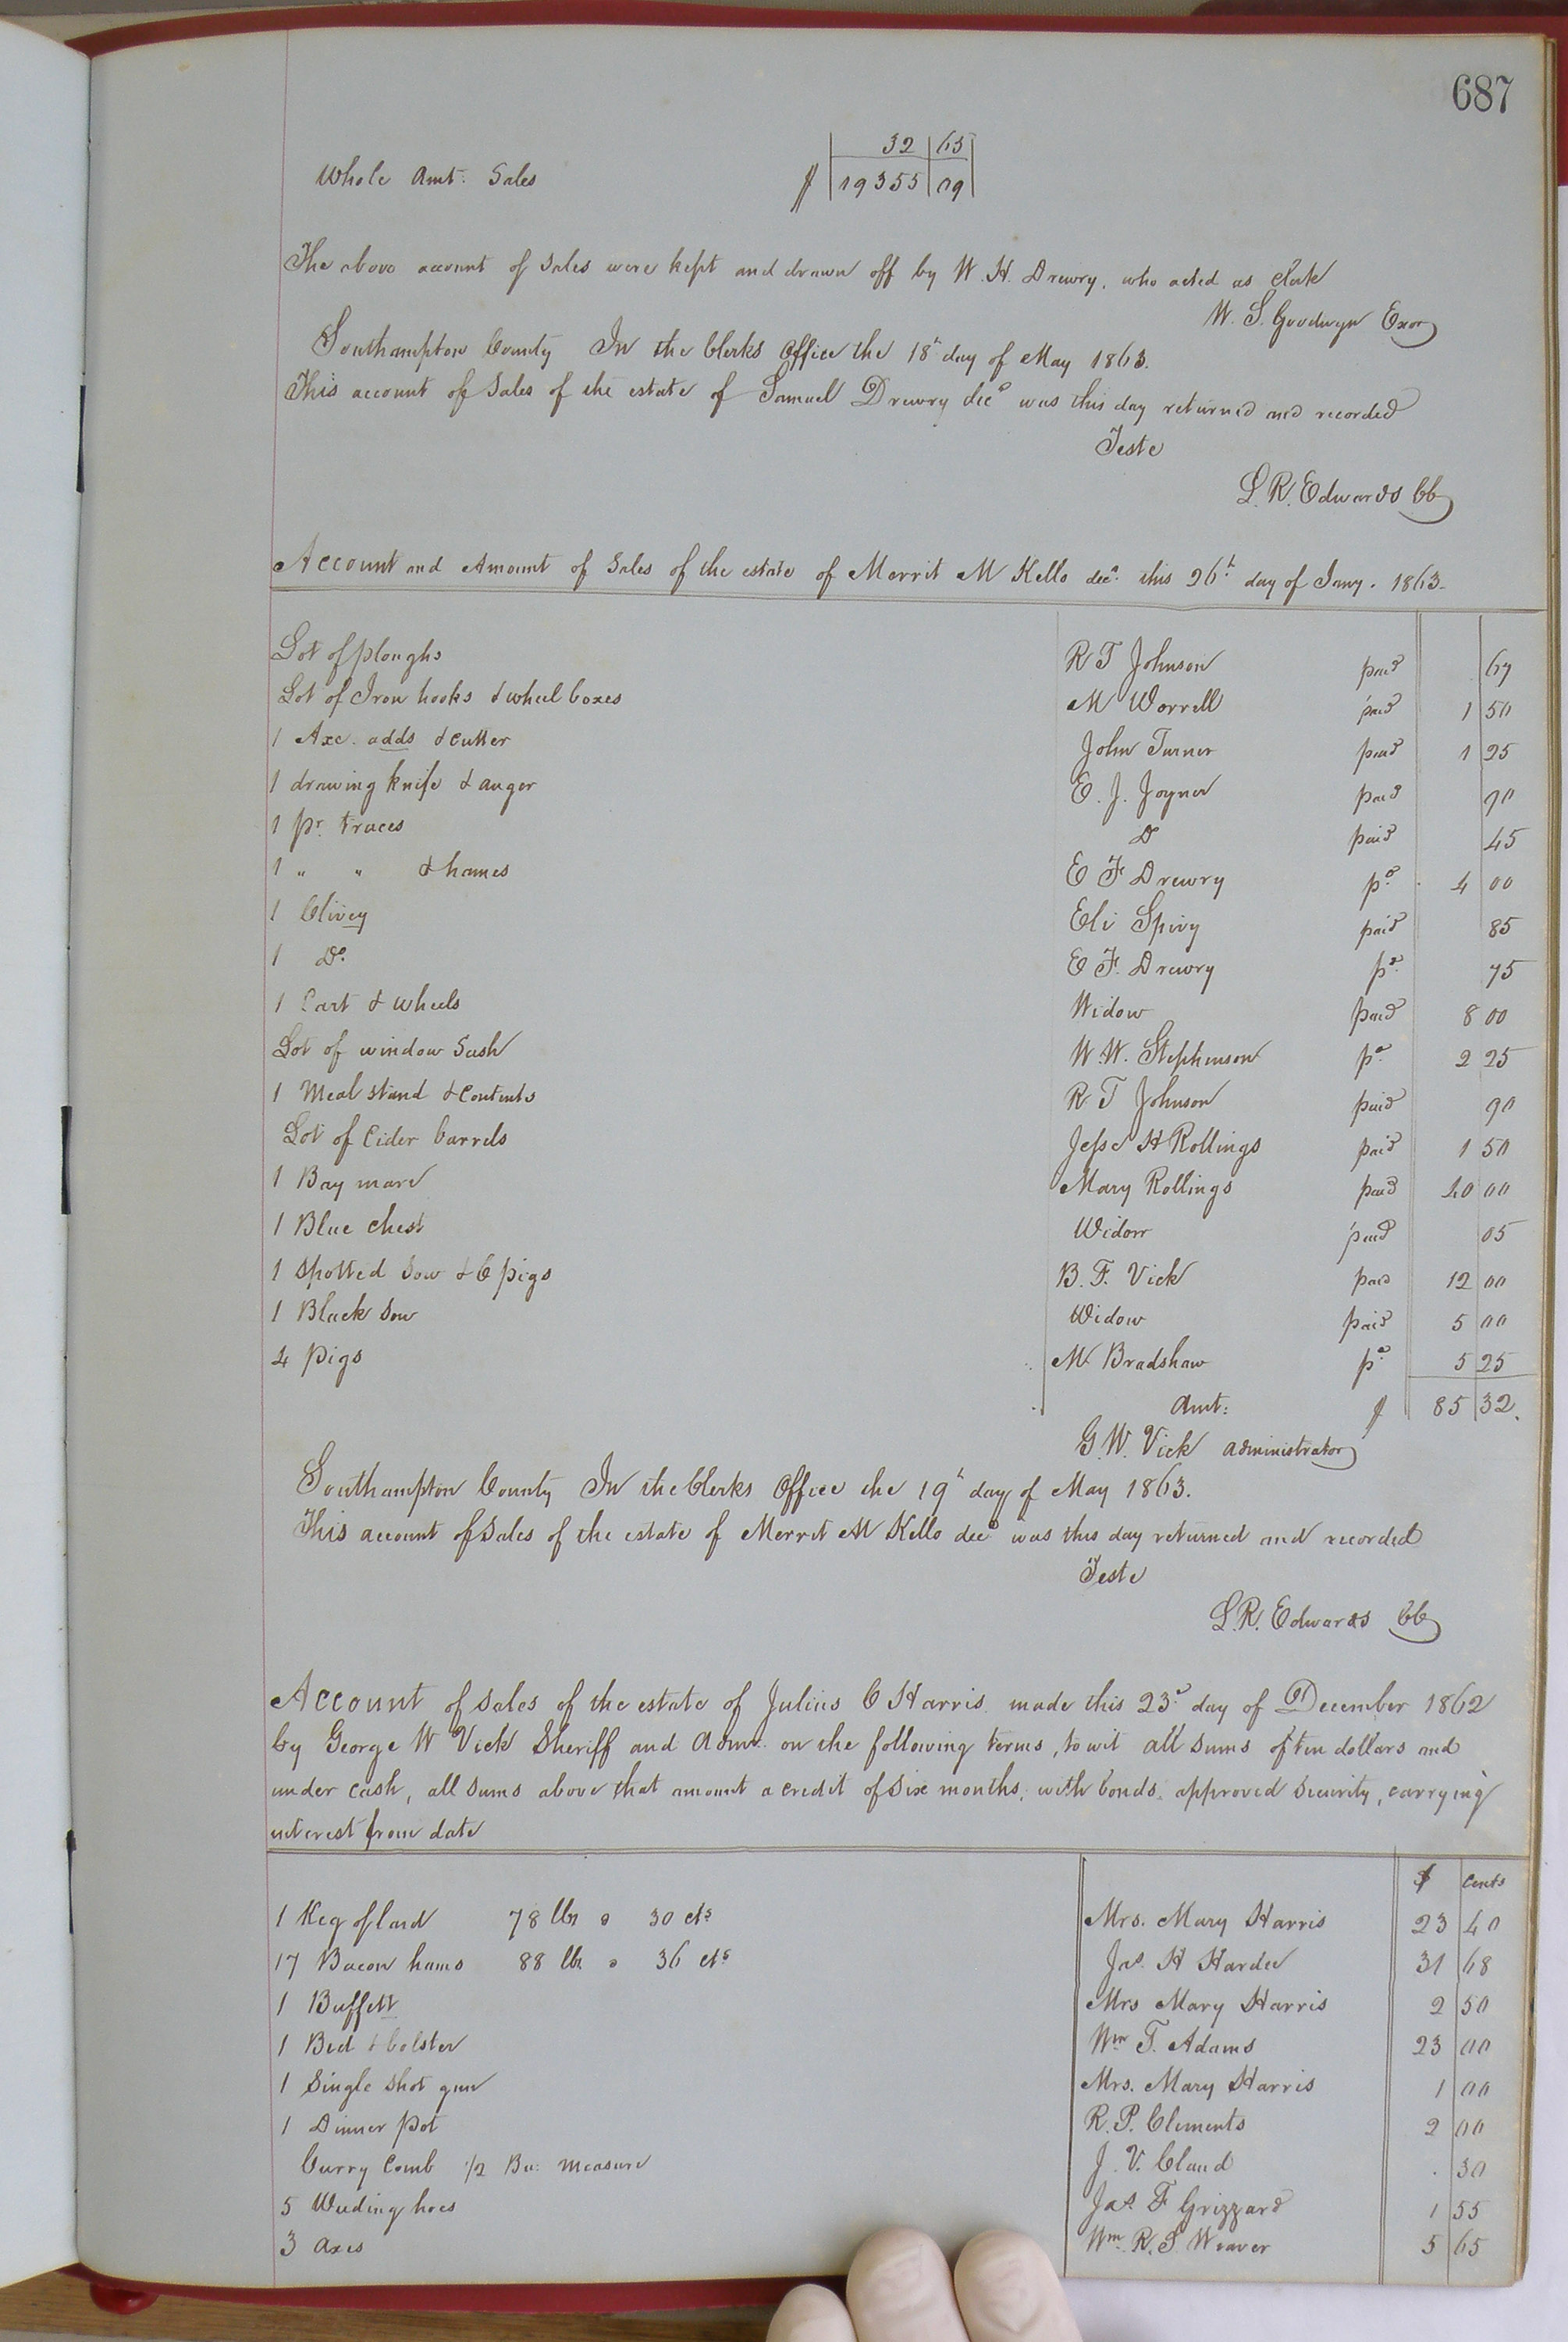 687
32 | 63
Whole Amt: Sales $ 19355 | 09
The above account of Sales were kept and drawn off by W. H. Drewry, who acted as Clerk
W. S. Goodwyn Exor
Southampton County In the Clerks Office the 18th day of May 1863.
This account of Sales of the estate of Samuel Drewry decd was this day returned and recorded
Teste
L. R. Edwards CC
Account and Amount of Sales of the estate of Merrit M Kello decd. this 26th day of Jany. 1863
Lot of ploughs R T Johnson paid 67
Lot of Iron hooks & wheel boxes M Worrell paid 1 50
1 Axe. adds & Cutter John Turner paid 1 25
1 drawing knife & auger E. J. Joyner paid 70
1 pr. traces Do paid 45
1 " " & hames E F Drewry pd. 4 00
1 Clivey Eli Spivy paid 85
1 Do. E F. Drewry pd. 75
1 Cart & wheels Widow paid 8 00
Lot of window Sash W. W. Stephenson pd. 2 25
1 Meal stand & Contents R T Johnson paid 90
Lot of Cider barrels Jesse H Rollings paid 1 50
1 Bay mare Mary Rollings paid 40 00
1 Blue chest Widow paid 05
1 Spotted Sow & 6 pigs B. F. Vick paid 12 00
1 Black Sow Widow paid 5 00
4 pigs M Bradshaw pd. 5 25
Amt: $ 85 32.
G. W. Vick administrator
Southampton County In the Clerks Office the 19th day of May 1863.
This account of Sales of the estate of Merrit M Kello decd was this day returned and recorded
Teste
L. R. Edwards CC
Account of Sales of the estate of Julius C Harris made this 23d day of December 1862
by George W Vick Sheriff and Admr. on the following terms, to wit all sums of ten dollars and
under cash, all sums above that amount a credit of six months, with bonds approved security, carrying
interest from date
$ cents
1 Keg of lard 78 lbs @ 30 cts Mrs. Mary Harris 23 40
17 Bacon hams 88 lbs @ 36 cts Jas. H Hardee 31 68
1 Buffett Mrs Mary Harris 2 50
1 Bed & bolster Wm T. Adams 23 00
1 Single shot gun Mrs. Mary Harris 1 00
1 Dinner pot R. P. Clements 2 00
Curry Comb 1/2 Bu: measure J. V. Claud 30
5 Weeding hoes Jas F Grizzard 1 55
3 axes Wm. R. S Weaver 5 65